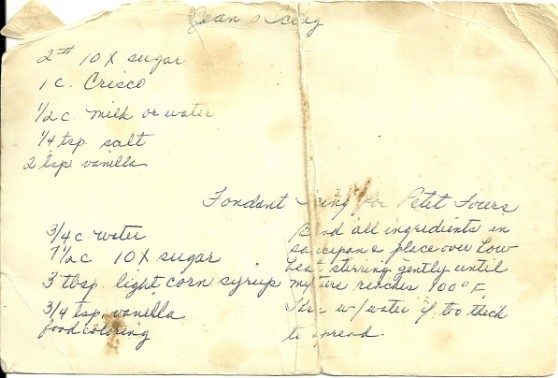 Jean's Icing
2# 10X sugar
1 c. Crisco
1/2 c. milk or water
1/4 tsp. salt
2 tsp. vanilla
Fondant Icing for Petit Fours
3/4 c water
7 1/2 c 10X sugar
3 tbsp. light corn syrup
3/4 tsp. vanilla
food coloring
Blend all ingredients in
saucepan & place over low
heat stirring gently until
mixture reaches 100° F.
Thin w/water if too thick
to spread.